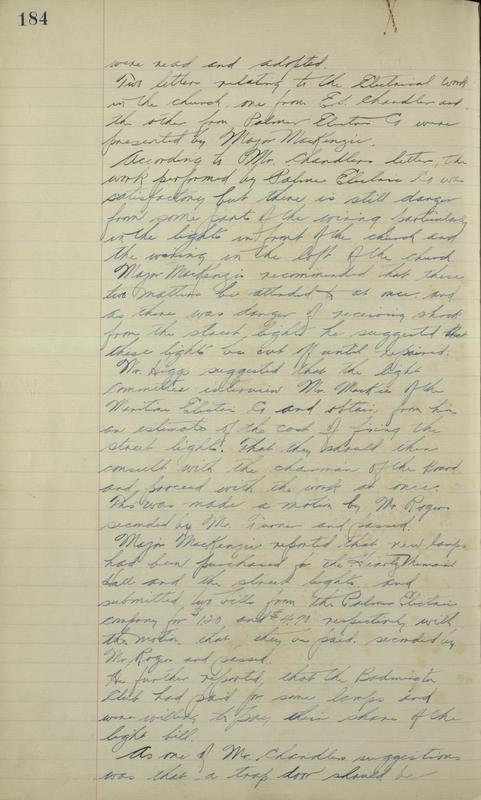 184
were read and adopted.
Two letters relating to the Electrical work
in the church, one from Ed. Chandler and
the other from Palmer Electric Co were
presented by Major MacKenzie.
According to Mr. Chandlers letter, the
work performed by Palmer Electric Co was
satisfactory but there is still danger
from some parts of the wiring particularly
in the lights in front of the church and
the wiring in the loft of the church
Major MacKenzie recommended that these
two matters be attended to at once and
as there was danger of receiving shock
from the street lights he suggested that
these lights be cut off until repaired.
Mr. Higgs suggested that the light
Committee interview Mr. Mackie of the
Maritime Electric Co and obtain from him
an estimate of the cost of fixing the
street lights. That they should then
consult with the chairman of the Board
and proceed with the work at once.
This was made a motion by Mr. Rogers
seconded by Mr. Turner and passed.
Major MacKenzie reported that new lamps
had been purchased for the
Hall and the street lights, and
submitted two bills from the Palmer Electric
company for and respectively with
the motion that they be paid. seconded by
Mr. Rogers and passed.
He further reported, that the Badminton
Club had paid for some lamps and
were willing to pay their share of the
light bill.
As one of Mr. Chandlers suggestions
was that a trap door should be